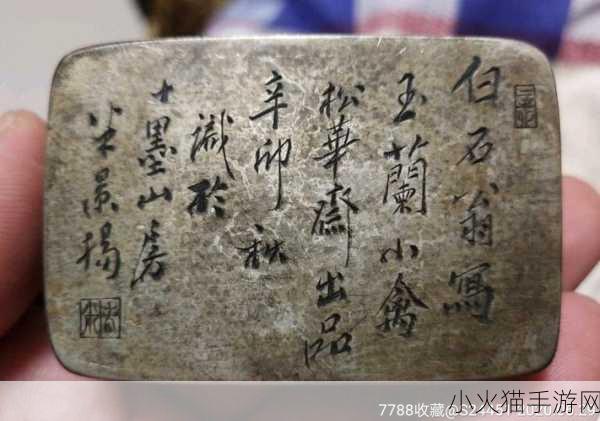 白石翁寫
玉蘭小禽
松華齋出品
辛卯秋
識於
十墨山房
米景揚
7788收藏
小火猫手游网